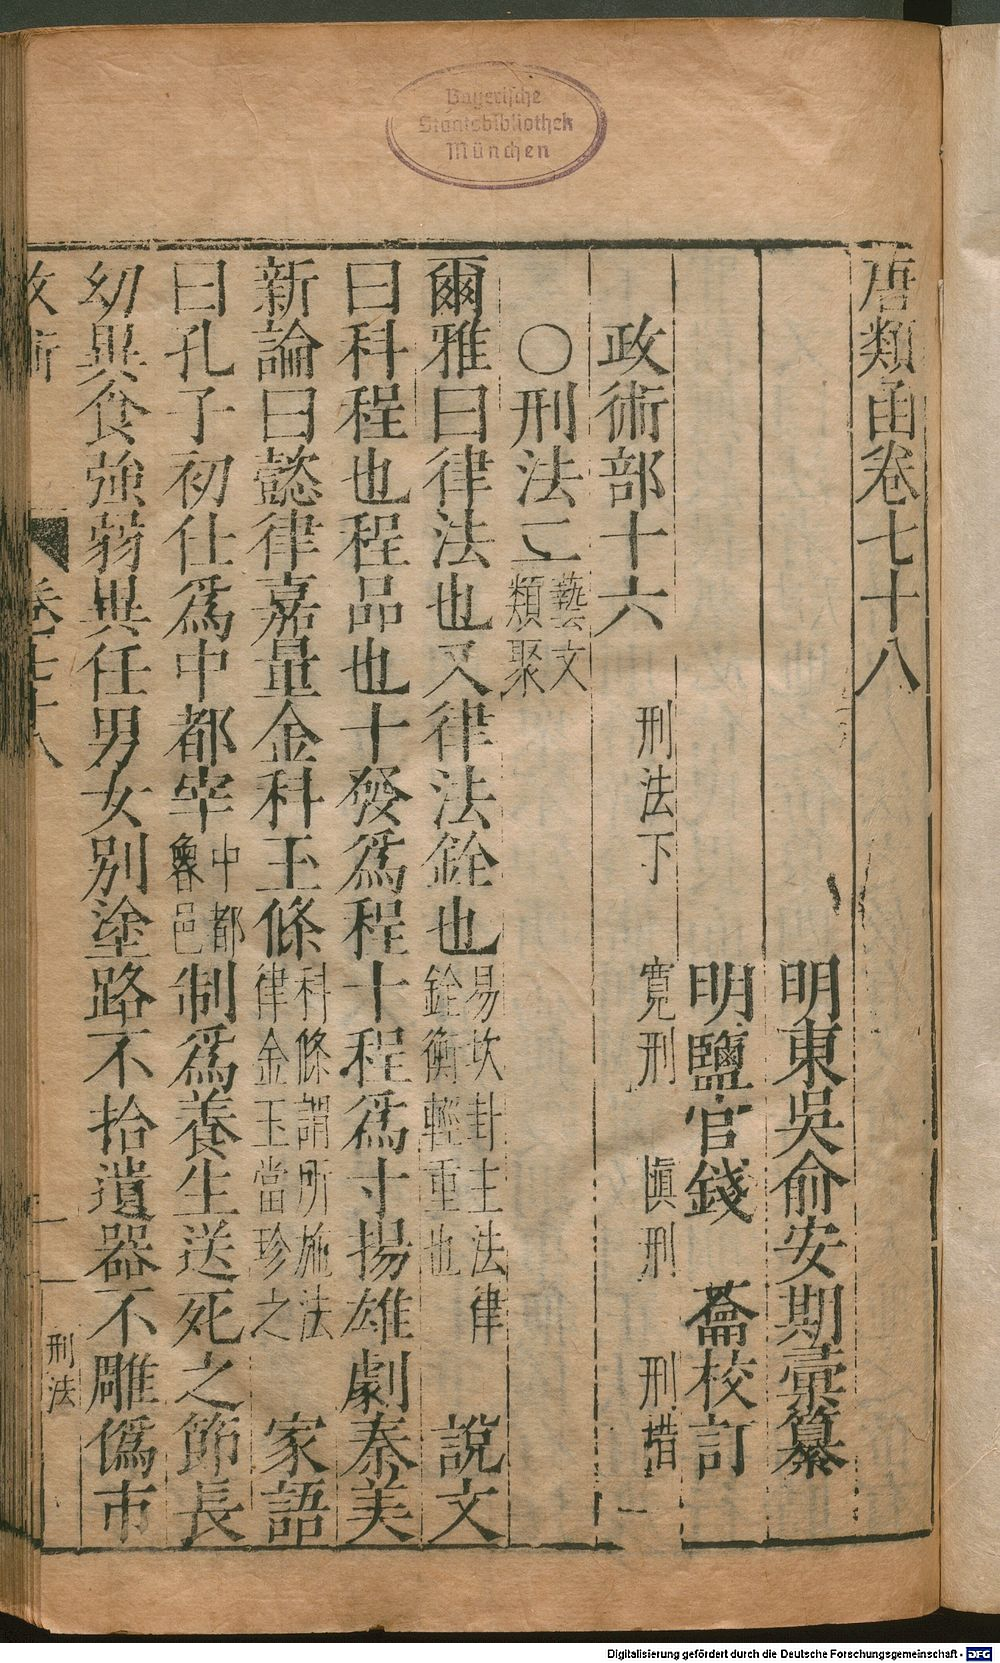 Bayerische
Staatsbibliothek
München
唐類函卷七十八
明東吳俞安期彙纂
明鹽官錢 蕃校訂
政術部十六 刑法下 寬刑 慎刑 刑措
○刑法二藝文類聚
爾雅曰律法也又律法銓也易坎卦主法律銓衡輕重也 說文
曰科程也程品也十發爲程十程爲寸揚雄劇秦美
新論曰懿律嘉量金科玉條科條謂所施法律金玉當珍之 家語
曰孔子初仕爲中都宰中都魯邑制爲養生送死之節長
幼異食強弱異任男女別塗路不拾遺器不雕僞市
政術 卷七十八 一 刑法
Digitalisierung gefördert durch die Deutsche Forschungsgemeinschaft - DFG